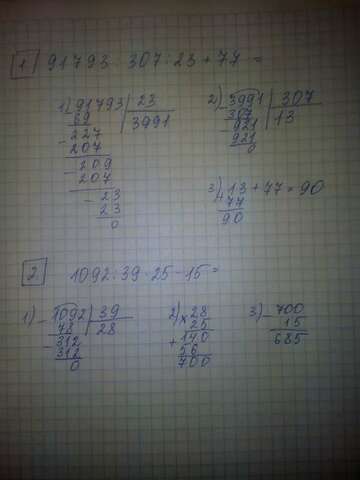 1 91793 : 307 : 23 + 77 =
1) 91793 | 23
69 | 3991
- 227
207
- 209
207
- 23
23
0
2) 3991 | 307
307 | 13
- 921
921
0
3) 13 + 77 = 90
+ 77
90
2. 1092 : 39 · 25 - 15 =
1) - 1092 | 39
78 | 28
- 312
312
0
2) × 28
25
+ 140
56
700
3) - 700
15
685